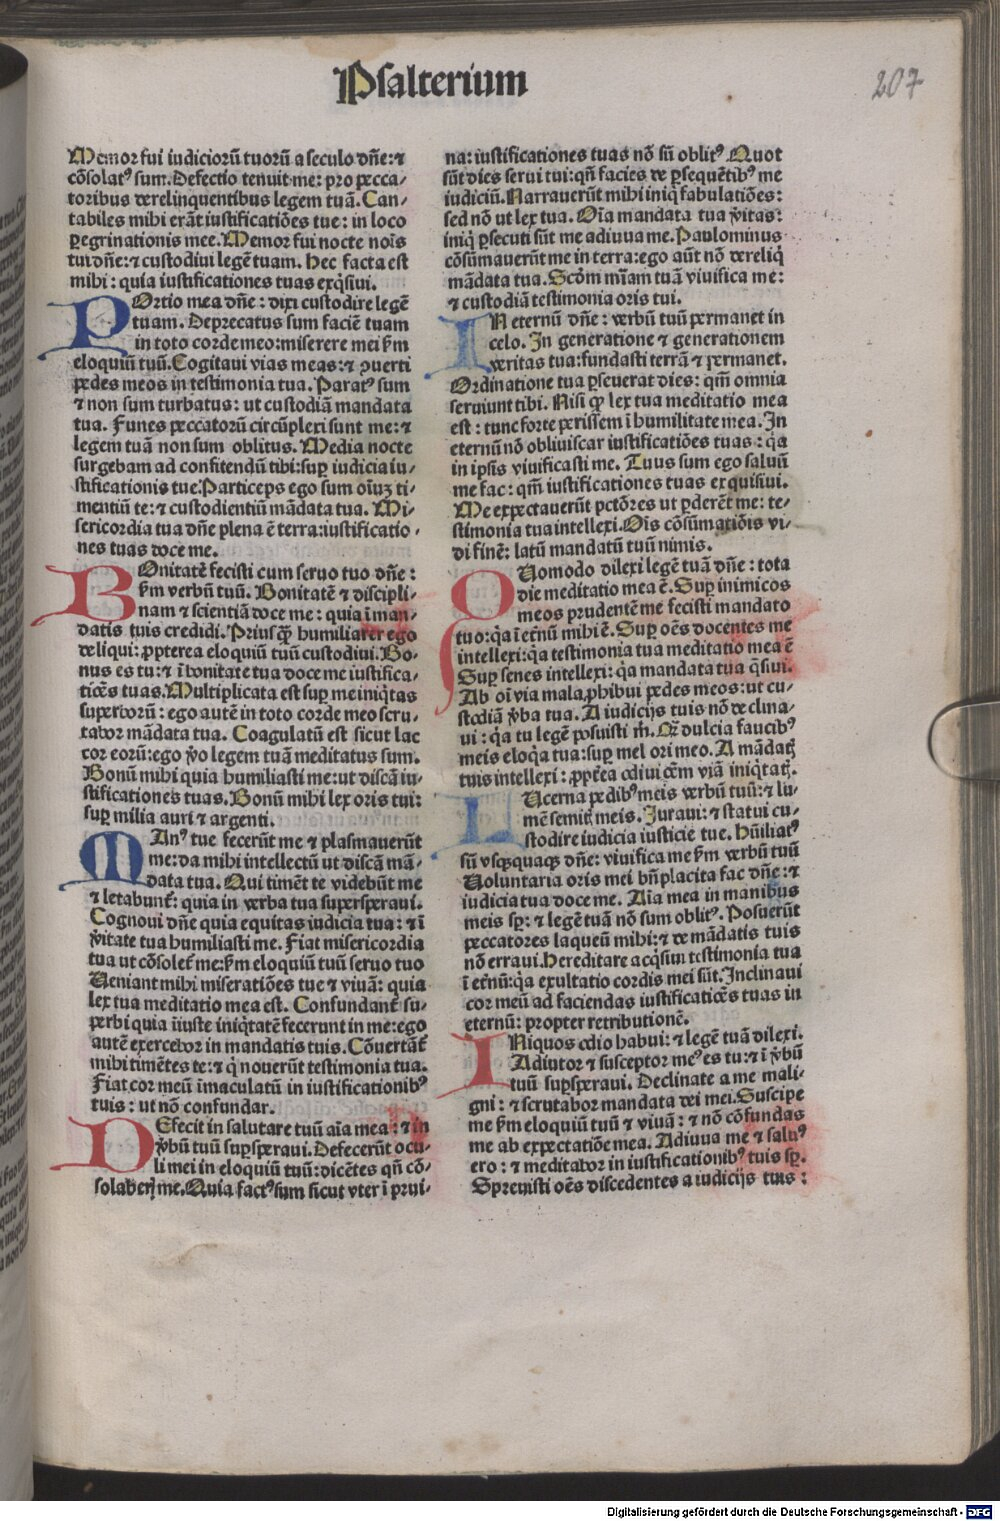 Psalterium
207
Memor fui iudicioꝝ tuoꝝ a seculo dñe: ⁊
cõsolatꝰ sum. Defectio tenuit me: pro pecca-
toribus derelinquentibus legem tuã. Can-
tabiles mihi erãt iustificatiões tue: in loco
ꝑegrinationis mee. Memor fui nocte nois
tui dñe: ⁊ custodiui legẽ tuam. Hec facta est
mihi: quia iustificationes tuas exq̃siui.
POrtio mea dñe: dixi custodire legẽ
tuam. Deprecatus sum faciẽ tuam
in toto corde meo: miserere mei ẜm
eloquiũ tuũ. Cogitaui vias meas: ⁊ ꝯuerti
pedes meos in testimonia tua. Paratꝰ sum
⁊ non sum turbatus: ut custodiã mandata
tua. Funes peccatorũ circũplexi sunt me: ⁊
legem tuã non sum oblitus. Media nocte
surgebam ad confitendũ tibi: suꝑ iudicia iu-
stificationis tue. Particeps ego sum oĩuꝫ ti-
mentiũ te: ⁊ custodientiũ mãdata tua. Mi-
sericordia tua dñe plena ẽ terra: iustificatio-
nes tuas doce me.
BOnitatẽ fecisti cum seruo tuo dñe:
ẜm verbũ tuũ. Bonitatẽ ⁊ discipli-
nam ⁊ scientiã doce me: quia ĩ man-
datis tuis credidi. Priusq̃ꝫ humiliarer ego
deliqui: ꝓpterea eloquiũ tuũ custodiui. Bo-
nus es tu: ⁊ ĩ bonitate tua doce me iustifica-
tiões tuas. Multiplicata est suꝑ me iniq̃tas
superborũ: ego autẽ in toto corde meo scru-
tabor mãdata tua. Coagulatũ est sicut lac
cor eorũ: ego v̾o legem tuã meditatus sum.
Bonũ mihi quia humiliasti me: ut discã iu-
stificationes tuas. Bonũ mihi lex oris tui:
suꝑ milia auri ⁊ argenti.
MAnꝰ tue fecerũt me ⁊ plasmauerũt
me: da mihi intellectũ ut discã mã-
data tua. Qui timẽt te videbũt me
⁊ letabunt᷑: quia in verba tua supersperaui.
Cognoui dñe quia equitas iudicia tua: ⁊ ĩ
v̾itate tua humiliasti me. Fiat misericordia
tua ut cõsolet᷑ me: ẜm eloquiũ tuũ seruo tuo
Veniant mihi miseratiões tue ⁊ viuã: quia
lex tua meditatio mea est. Confundant᷑ su-
perbi quia iniuste iniq̃tatẽ fecerunt in me: ego
autẽ exercebor in mandatis tuis. Cõuertãt᷑
mihi timẽtes te: ⁊ q̃ nouerũt testimonia tua.
Fiat cor meũ ĩmaculatũ in iustificationibꝰ
tuis: ut nõ confundar.
DEfecit in salutare tuũ aĩa mea: ⁊ in
v̾bũ tuũ suꝑsperaui. Defecerũt ocu-
li mei in eloquiũ tuũ: dicẽtes qñ cõ-
solaberꝭ me. Quia factꝰ sum sicut vter ĩ prui-
na: iustificationes tuas nõ sũ oblitꝰ. Quot
sũt dies serui tui: qñ facies de ꝑsequẽtibꝰ me
iudiciũ. Narrauerũt mihi iniq̃ fabulatiões:
sed nõ ut lex tua. Oĩa mandata tua v̾itas:
iniq̃ ꝑsecuti sũt me adiuua me. Paulominus
cõsũmauerũt me in terra: ego aũt nõ dereliq̃
mãdata tua. Scḋm mĩam tuã viuifica me:
⁊ custodiã testimonia oris tui.
IN eternũ dñe: verbũ tuũ permanet in
celo. In generatione ⁊ generationem
veritas tua: fundasti terrã ⁊ permanet.
Ordinatione tua ꝑseuerat dies: qm̃ omnia
seruiunt tibi. Nisi ꝙ lex tua meditatio mea
est: tunc forte perissem ĩ humilitate mea. In
eternũ nõ obliuiscar iustificatiões tuas: q̃a
in ipsis viuificasti me. Tuus sum ego saluũ
me fac: qm̃ iustificationes tuas exquisiui.
Me expectauerũt pctõres ut ꝑderẽt me: te-
stimonia tua intellexi. Oĩs cõsũmatiõis vi-
di finẽ: latũ mandatũ tuũ nimis.
QUomodo dilexi legẽ tuã dñe: tota
die meditatio mea ẽ. Suꝑ inimicos
meos prudentẽ me fecisti mandato
tuo: q̃a ĩ et̾nũ mihi ẽ. Suꝑ oẽs docentes me
intellexi: q̃a testimonia tua meditatio mea ẽ
Suꝑ senes intellexi: q̃a mandata tua q̃siui.
Ab oĩ via mala ꝓhibui pedes meos: ut cu-
stodiã v̾ba tua. A iudicijs tuis nõ declina-
ui: q̃a tu legẽ posuisti m̃. Q̃ dulcia faucibꝰ
meis eloq̃a tua: suꝑ mel ori meo. A mãdatꝭ
tuis intellexi: ꝓpt̾ea odiui oẽm viã iniq̃tatꝭ.
LUcerna pedibꝰ meis verbũ tuũ: ⁊ lu-
mẽ semitꝭ meis. Iuraui: ⁊ statui cu-
stodire iudicia iusticie tue. Hũiliatꝰ
sũ vsq̃quaq̃ dñe: viuifica me ẜm verbũ tuũ
Voluntaria oris mei bñplacita fac dñe: ⁊
iudicia tua doce me. Aĩa mea in manibus
meis sꝑ: ⁊ legẽ tuã nõ sum oblitꝰ. Posuerũt
peccatores laqueũ mihi: ⁊ de mãdatis tuis
nõ erraui. Hereditate acq̃siui testimonia tua
ĩ et̾nũ: q̃a exultatio cordis mei sũt. Inclinaui
cor meũ ad faciendas iustificatiões tuas in
eternũ: propter retributionẽ.
INiquos odio habui: ⁊ legẽ tuã dilexi.
Adiutor ⁊ susceptor meꝰ es tu: ⁊ ĩ v̾bũ
tuũ suꝑsperaui. Declinate a me mali-
gni: ⁊ scrutabor mandata dei mei. Suscipe
me ẜm eloquiũ tuũ ⁊ viuã: ⁊ nõ cõfundas
me ab expectatiõe mea. Adiuua me ⁊ saluꝰ
ero: ⁊ meditabor in iustificationibꝰ tuis sꝑ.
Spreuisti oẽs discedentes a iudicijs tuis:
Digitalisierung gefördert durch die Deutsche Forschungsgemeinschaft - DFG